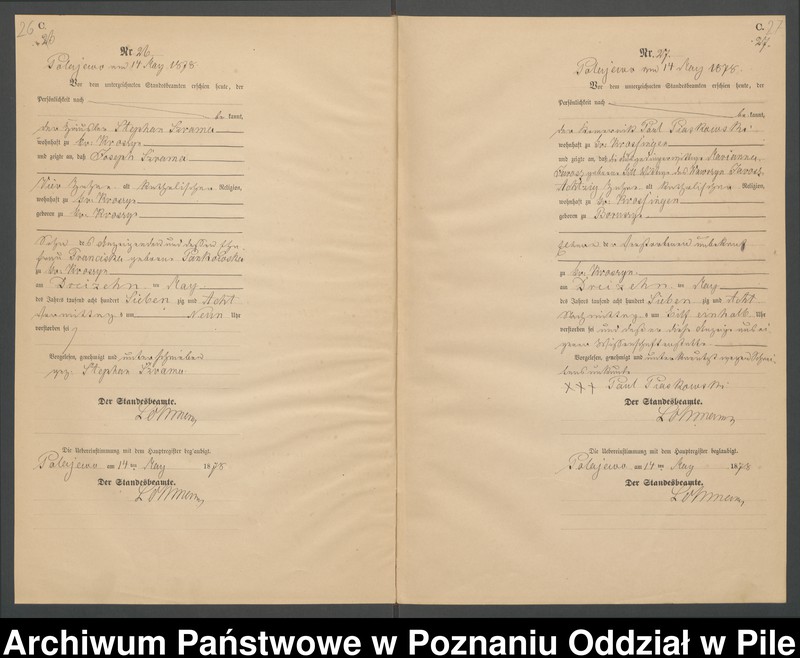 26
C.
26
Nr. 26.
Polajewo am 14 May 1878
Vor dem unterzeichneten Standesbeamten erschien heute, der
Persönlichkeit nach
be kannt,
der Häusler Stephan Szrama
wohnhaft zu Gr. Kroszyn
und zeigte an, daß Joseph Szrama
Vier Jahre alt katholischer Religion,
wohnhaft zu Gr. Kroszyn
geboren zu Gr. Kroszyn
Sohn des Anzeigenden und dessen Ehe
frau Franciska geborene
zu Gr. Kroszyn
am Dreizehn ten May
des Jahres tausend acht hundert Sieben zig und Acht
Vormittags um Neun Uhr
verstorben sei
Vorgelesen, genehmigt und unterschrieben
gez. Stephan Szrama
Der Standesbeamte.
Die Uebereinstimmung mit dem Hauptregister beglaubigt.
Polajewo am 14ten May 1878
Der Standesbeamte.
C. 27
27.
Nr. 27.
Polajewo am 14 May 1878
Vor dem unterzeichneten Standesbeamten erschien heute, der
Persönlichkeit nach
be kannt,
der Paul Piaskowski
wohnhaft zu Gr. Krossingen
und zeigte an, daß die Marianna
geborene Wittwe des Wawrzyn
Achtzig Jahre alt katholischer Religion,
wohnhaft zu Gr. Krossingen
geboren zu
Eltern der Verstorbenen unbekannt
zu Gr. Kroszyn
am Dreizehn ten May
des Jahres tausend acht hundert Sieben zig und Acht
Nachmittags um einhalb Uhr
verstorben sei und daß er diese Anzeige aus ei
gener Wissenschaft erstatte
Vorgelesen, genehmigt und unterkreuzt wegen Schrei
bens unkunde
XXX Paul Piaskowski
Der Standesbeamte.
Die Uebereinstimmung mit dem Hauptregister beglaubigt.
Polajewo am 14ten May 1878
Der Standesbeamte.
Archiwum Państwowe w Poznaniu Oddział w Pile